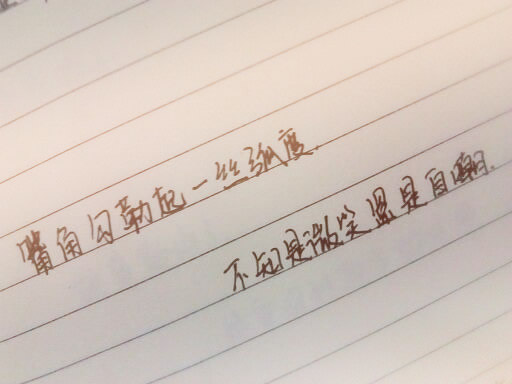 嘴角勾勒起一丝弧度.
不知是微笑还是自嘲.